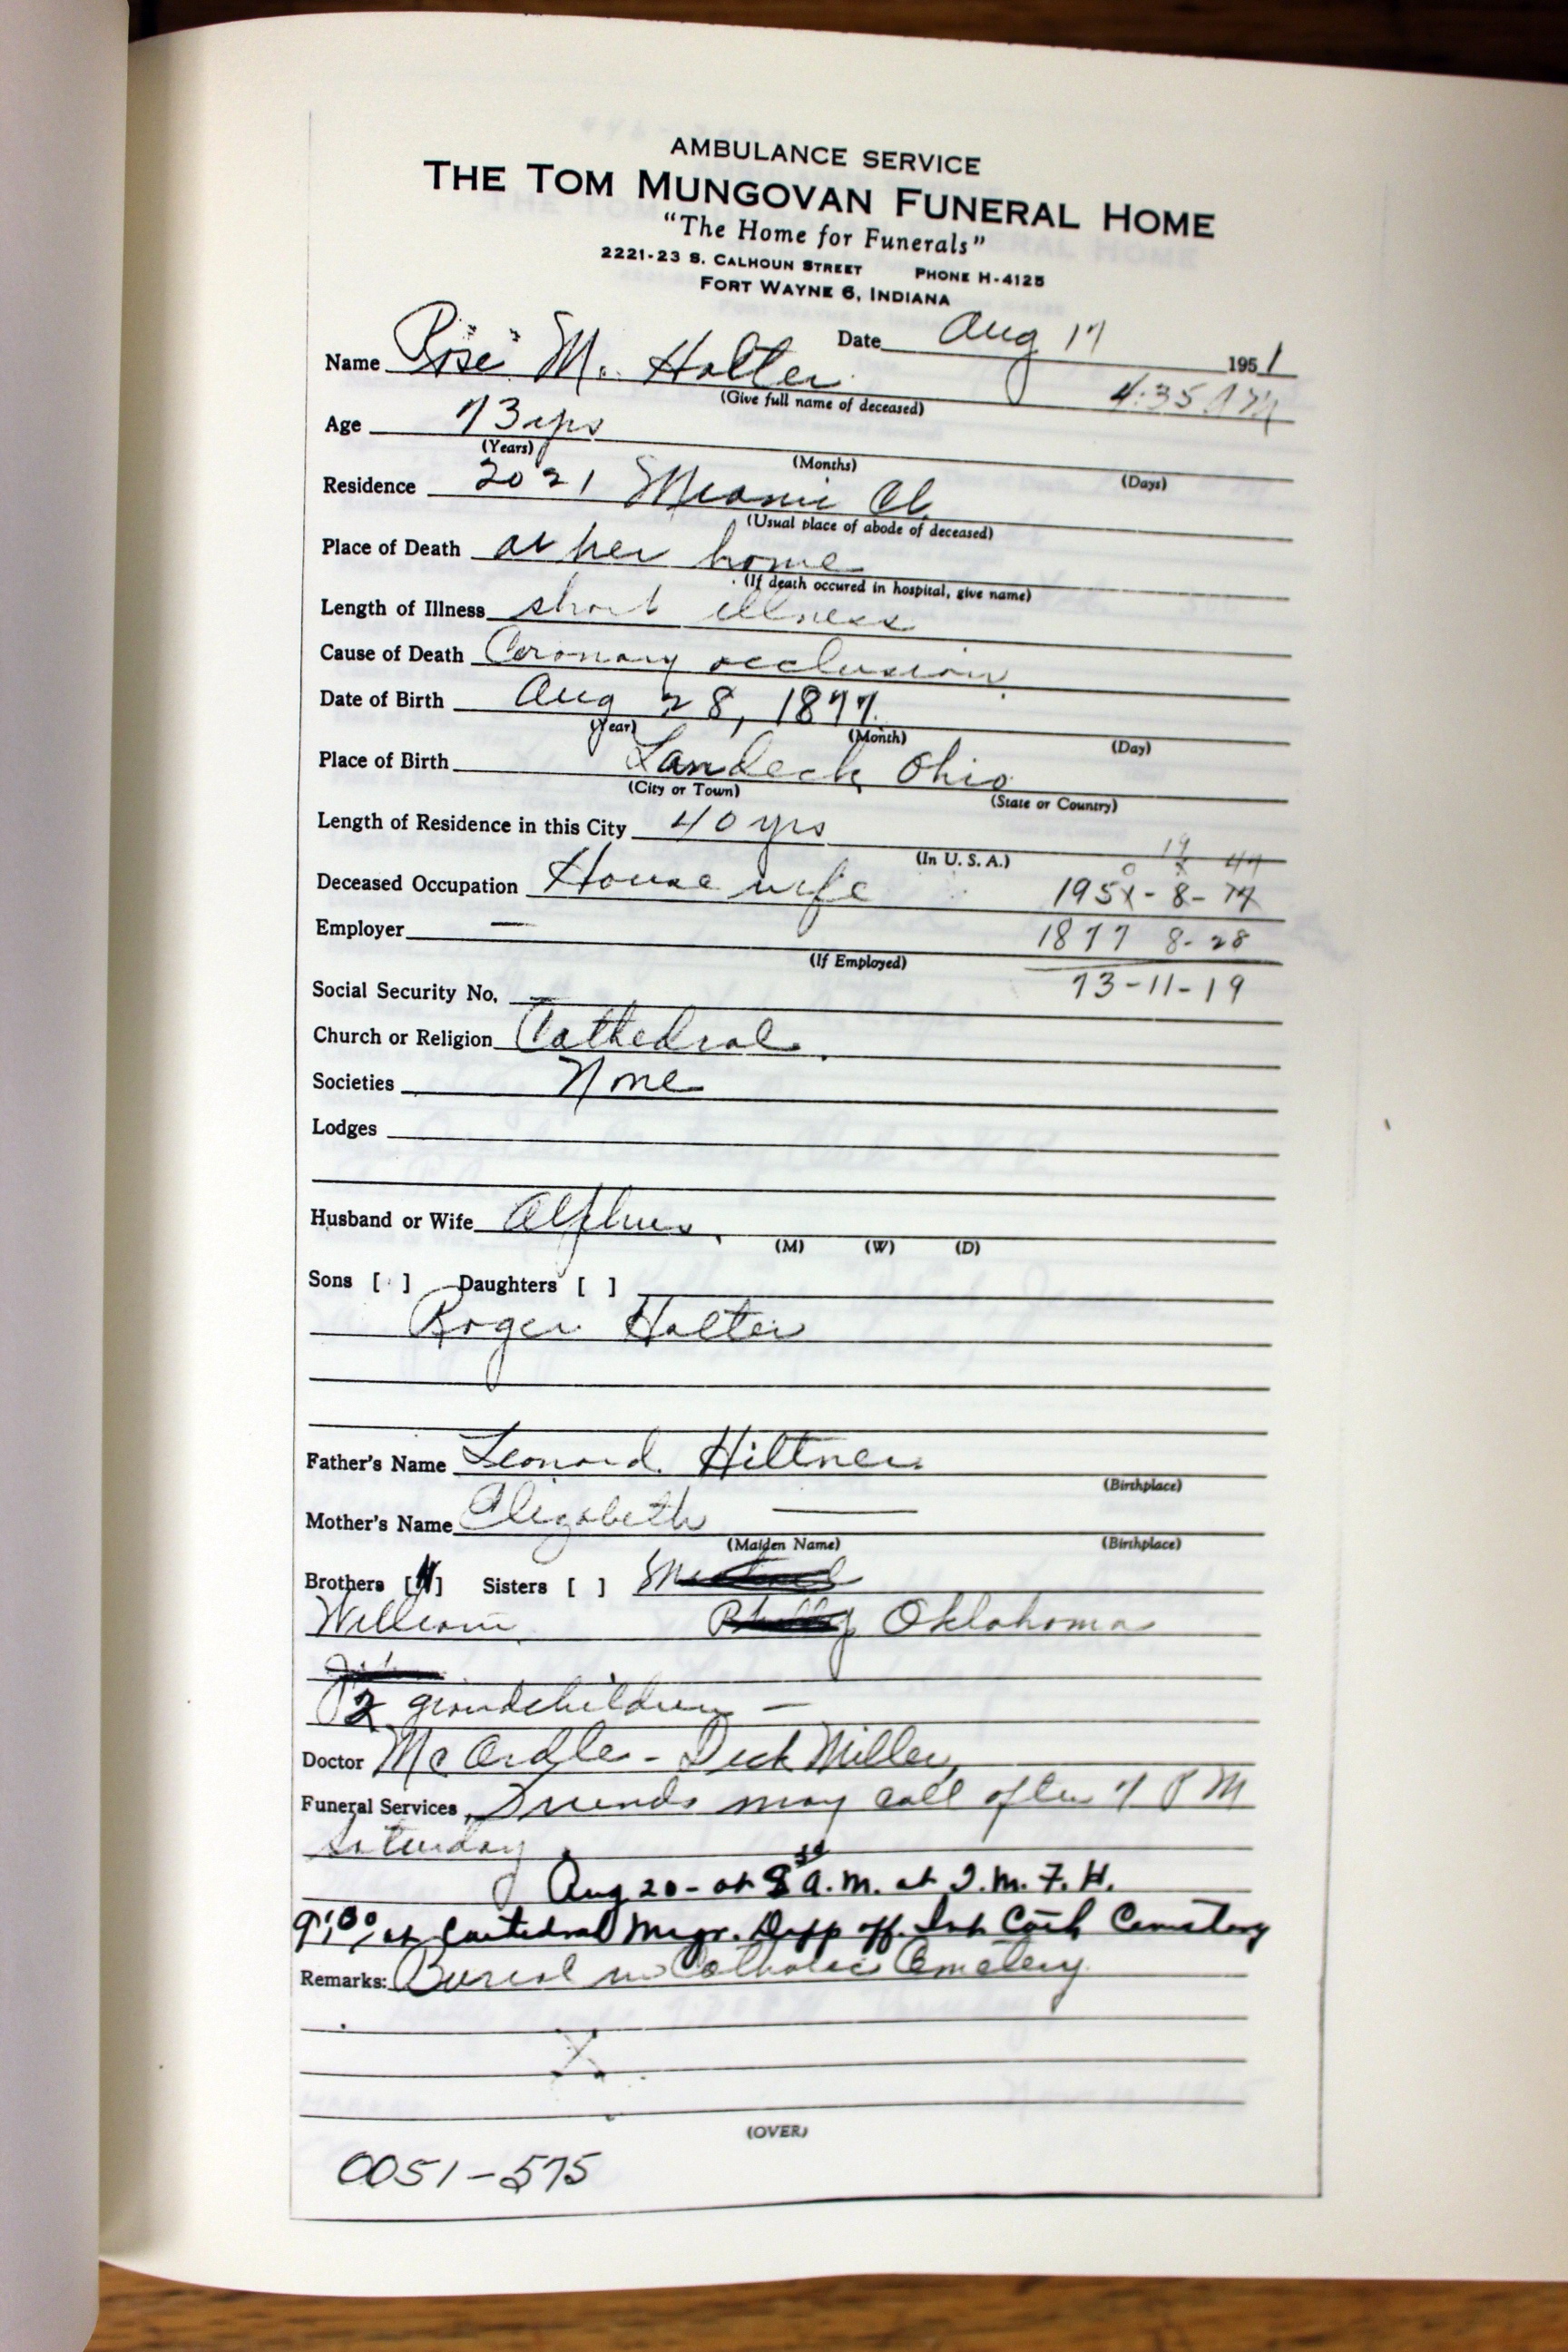 AMBULANCE SERVICE
THE TOM MUNGOVAN FUNERAL HOME
"The Home for Funerals"
2221-23 S. CALHOUN STREET PHONE H-4125
FORT WAYNE 6, INDIANA
Date Aug 17 1951
Name "Rose" M. Holter 4:35
(Give full name of deceased)
Age 73 yrs
(Years) (Months) (Days)
Residence 2021
(Usual place of abode of deceased)
Place of Death at her home
(If death occured in hospital, give name)
Length of Illness short illness
Cause of Death Coronary occlusion
Date of Birth Aug 28, 1877.
(Year) (Month) (Day)
Place of Birth Landeck, Ohio
(City or Town) (State or Country)
Length of Residence in this City 40 yrs
(In U. S. A.) 19 47
Deceased Occupation House wife 1951-8-17
Employer — 1877 8-28
(If Employed)
Social Security No. — 73-11-19
Church or Religion Cathedral.
Societies None
Lodges
Husband or Wife Alphus
(M) (W) (D)
Sons [ ] Daughters [ ]
Roger Holter
Father's Name Leonard Hiltner
(Birthplace)
Mother's Name Elizabeth —
(Maiden Name) (Birthplace)
Brothers [ ] Sisters [ ]
William Oklahoma
2 grandchildren —
Doctor McArdle - Dick Miller,
Funeral Services Friends may call after 7 PM
Saturday
Aug 20 - at 8 a.m. at T. M. F. H.
9:00 at Cathedral Msgr. off. Cath Cemetery
Remarks: Burial in Catholic Cemetery
(OVER)
0051-575